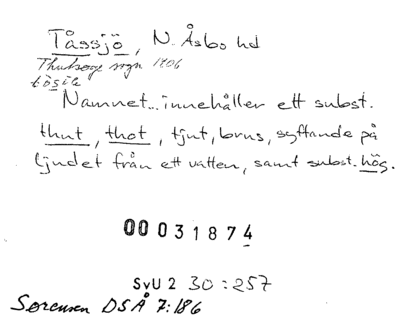 Tåssjö, N. Åsbo hd
Thutsøge sogn 1806
tåsile
Namnet... innehåller ett subst.
thut, thot, tjut, brus, syftande på
ljudet från ett vatten, samt subst. hög.
00031874
SvU 2 30:257
Sørensen DSÅ 7:186